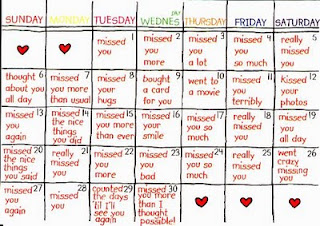 SUNDAY MONDAY TUESDAY WEDNES DAY THURSDAY FRIDAY SATURDAY
1 missed you
2 missed you more
3 missed you a lot
4 missed you so much
5 really missed you
6 thought about you all day
7 missed you more than usual
8 missed your hugs
9 bought a card for you
10 went to a movie
11 missed you terribly
12 Kissed your photos
13 missed you again
14 missed the nice things you did
15 missed you more than ever
16 missed your smile
17 missed you so much
18 really missed you
19 missed you all day
20 missed the nice things you said
21 really missed you
22 missed you more
23 missed you bad
24 missed you so much
25 really missed you
26 went crazy missing you
27 missed you again
28 missed you
29 counted the days 'til I'll see you again
30 missed you more than I thought possible!